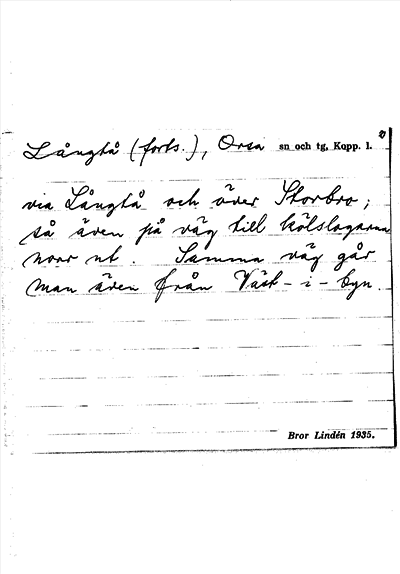 Långtå (forts.), Orsa sn och tg, Kopp. l.
via Långtå och över Storbro;
så även på väg till kölslogarna
norr ut. Samma väg går
man även från Väst-i-byn.
Bror Lindén 1935.